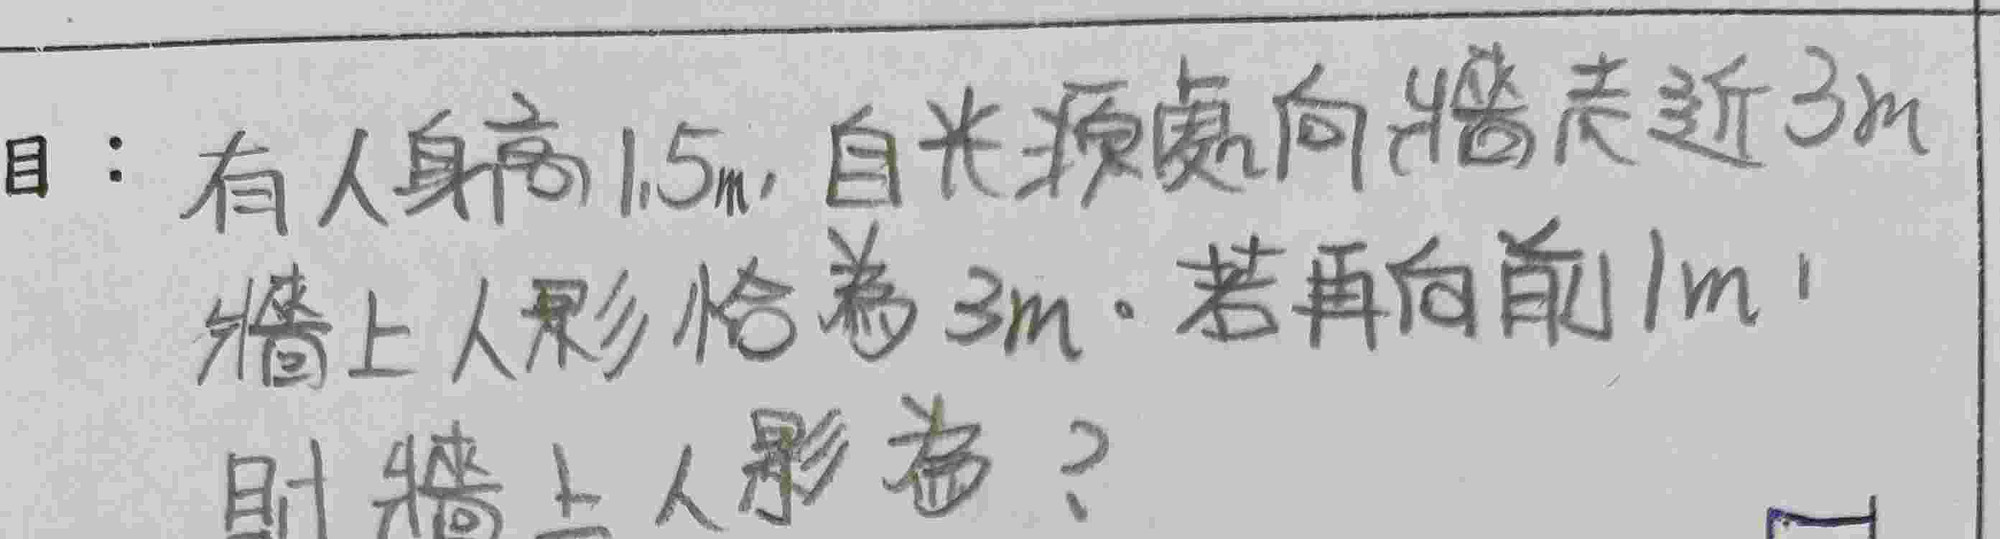 目：有人身高1.5m，自光源處向牆走近3m
牆上人影恰為3m．若再向前1m，
則牆上人影為？